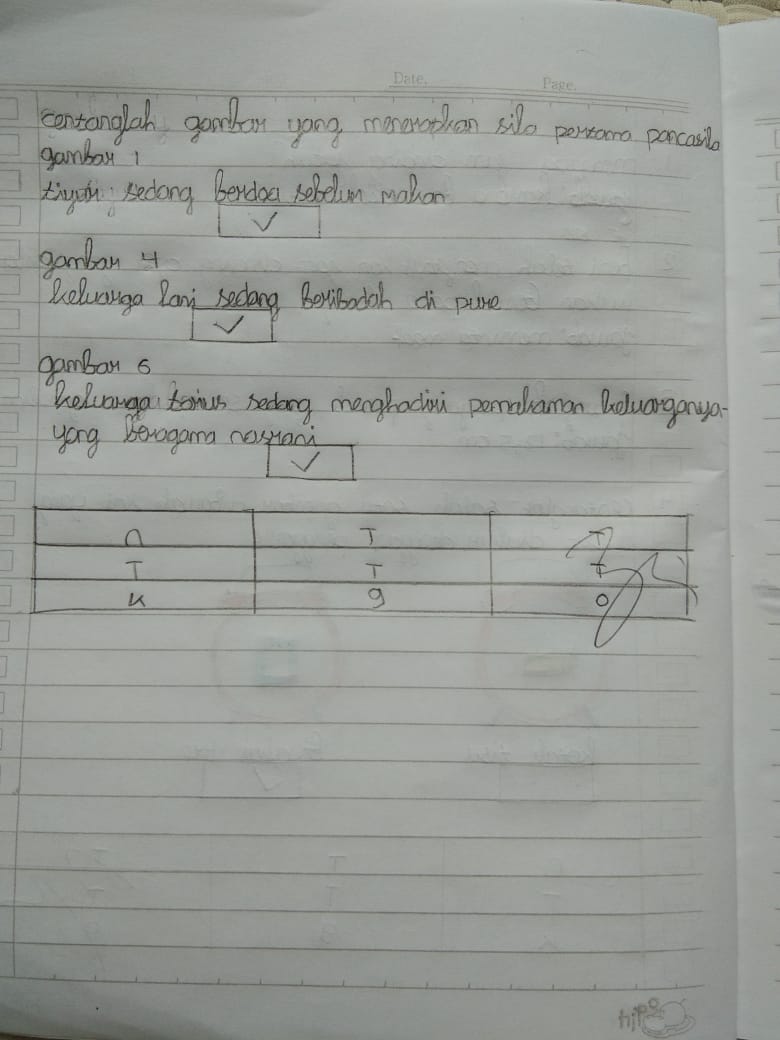 Date. Page.
centanglah gambar yang menerapkan sila pertama pancasila
gambar 1
sedang berdoa sebelum makan
✓
gambar 4
keluarga lani sedang beribadah di pure
✓
gambar 6
keluarga sedang menghadiri pemakaman keluarganya-
yang beragama nasrani
✓
n T T
T T t
k g o
hipo